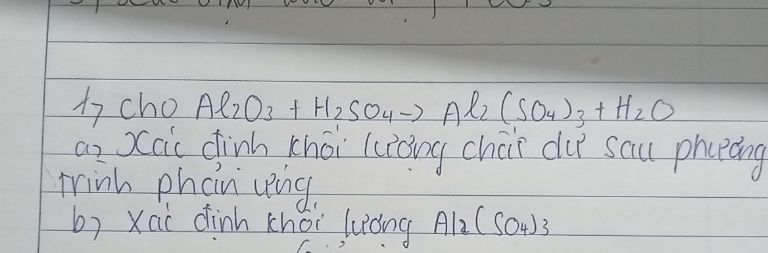 1, cho Al2O3 + H2SO4 -> Al2(SO4)3 + H2O
a, Xác định khối lượng chất dư sau phương
trình phản ứng
b, Xác định khối lượng Al2(SO4)3